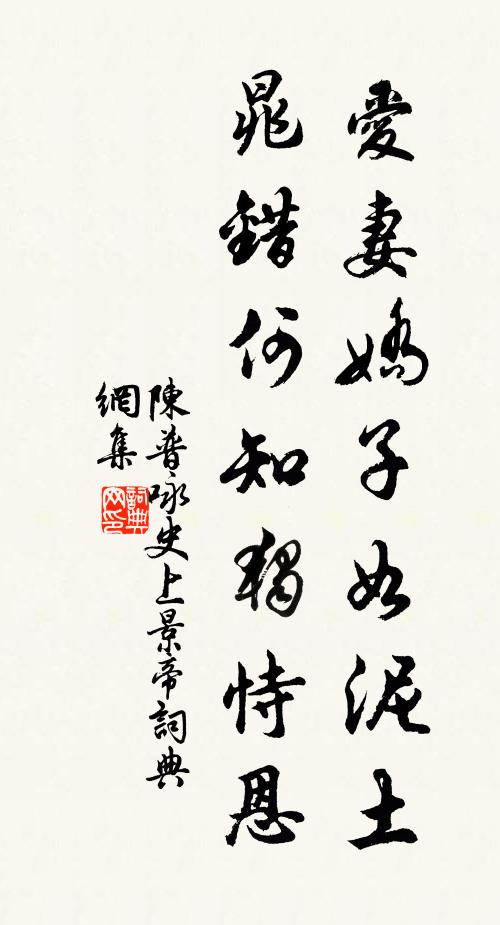 愛妻嬌子如泥土
晁錯何知獨恃恩
陳普咏史上景帝詞典
網集
詞典網印